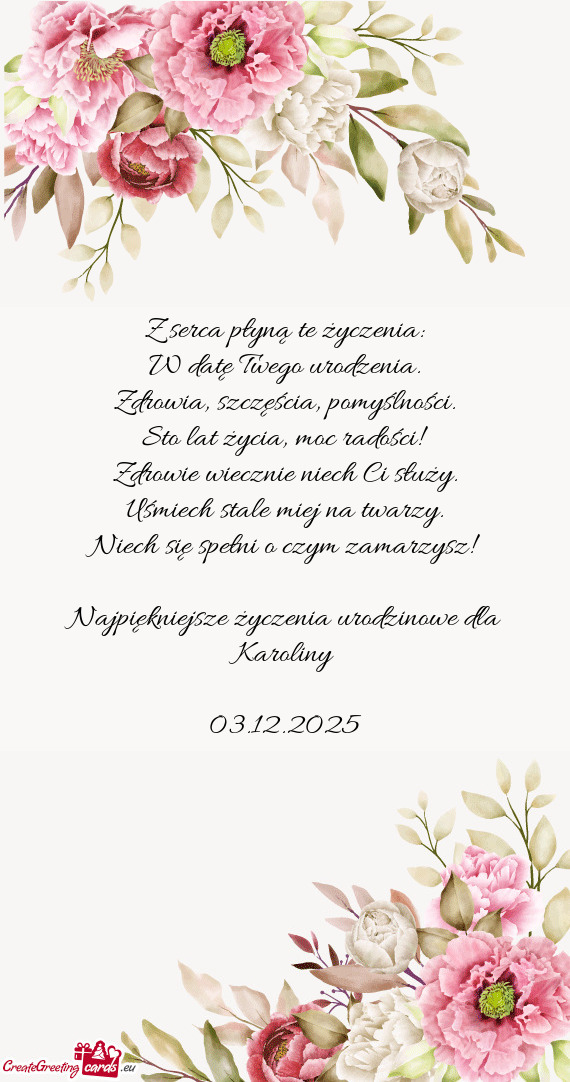 Z serca płyną te życzenia:
W datę Twego urodzenia.
Zdrowia, szczęścia, pomyślności.
Sto lat życia, moc radości!
Zdrowie wiecznie niech Ci służy.
Uśmiech stale miej na twarzy.
Niech się spełni o czym zamarzysz!
Najpiękniejsze życzenia urodzinowe dla
Karoliny
03.12.2025
CreateGreeting cards .eu